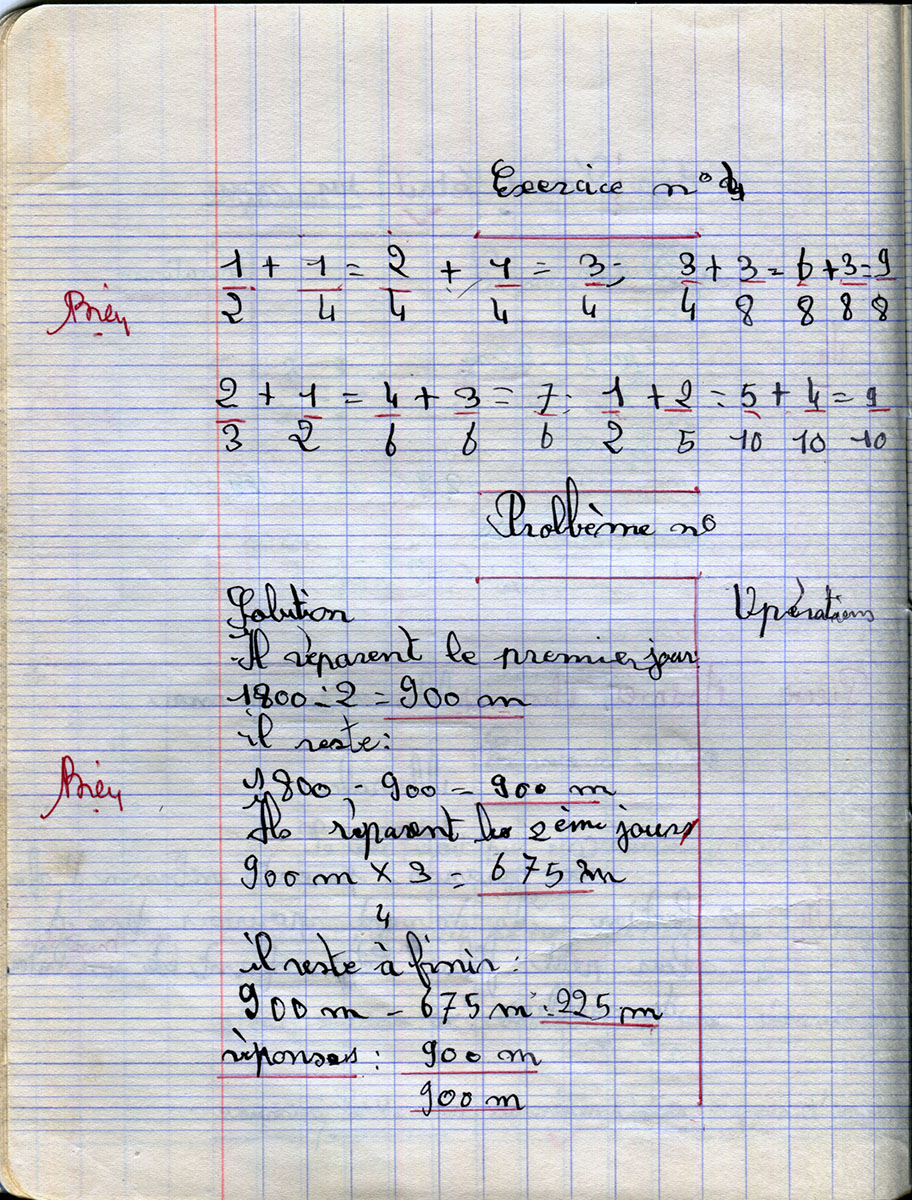 Exercice n° 4
1/2 + 1/4 = 2/4 + 1/4 = 3/4; 3/4 + 3/8 = 6/8 + 3/8 = 9/8
Bien
2/3 + 1/2 = 4/6 + 3/6 = 7/6 : 1/2 + 2/5 = 5/10 + 4/10 = 9/10
Prolbème no
Solution
Opérations
Il réparent le premier jour
1800 : 2 = 900 m
il reste:
Bien
1800 - 900 = 900 m
Ils réparent les 2ème jours
900 m × 3/4 = 675 m
il reste à finir :
900 m - 675 m = 225 m
réponses : 900 m
900 m